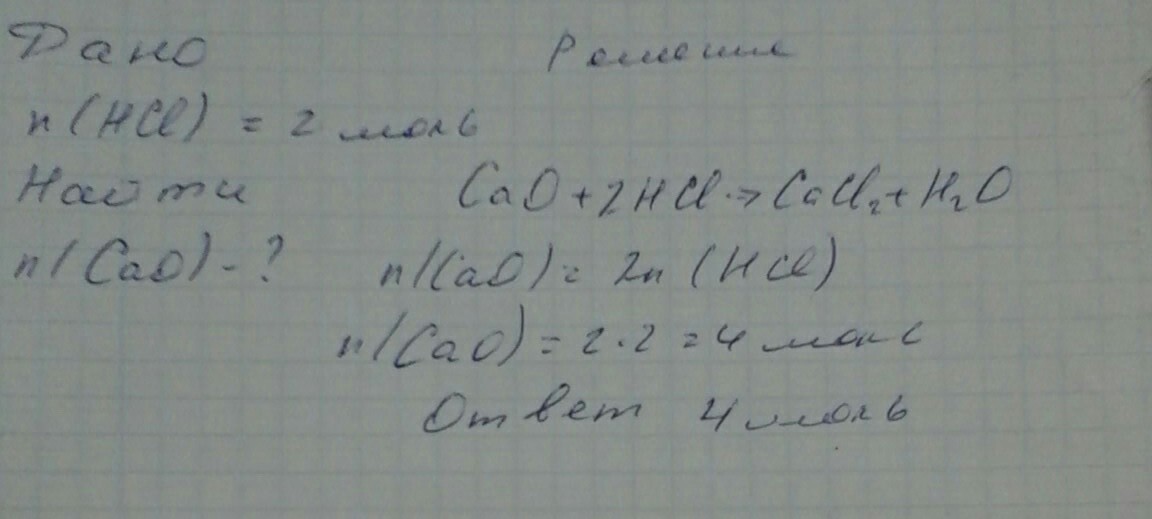 Дано Решение
n(HCl) = 2 моль
Найти CaO + 2HCl → CaCl₂ + H₂O
n(CaO) - ? n(CaO) = 2n (HCl)
n(CaO) = 2·2 = 4 моль
Ответ 4 моль